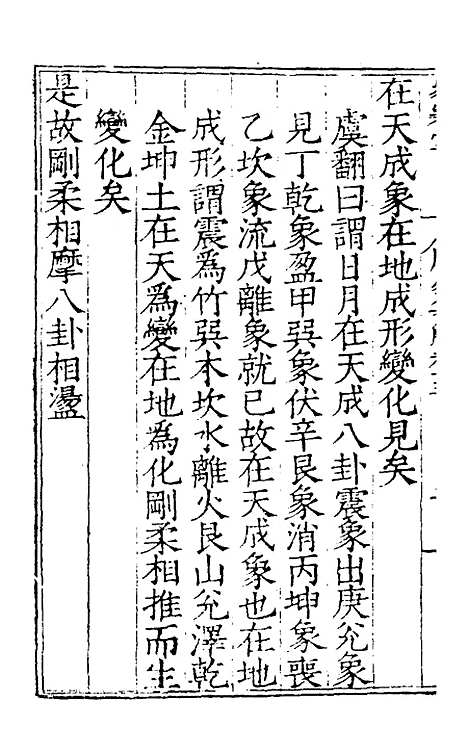 在天成象在地成形變化見矣
虞翻曰謂日月在天成八卦震象出庚兊象
見丁乾象盈甲巽象伏辛艮象消丙坤象喪
乙坎象流戊離象就已故在天成象也在地
成形謂震為竹巽木坎水離火艮山兊澤乾
金坤土在天為變在地為化剛柔相推而生
變化矣
是故剛柔相摩八卦相盪